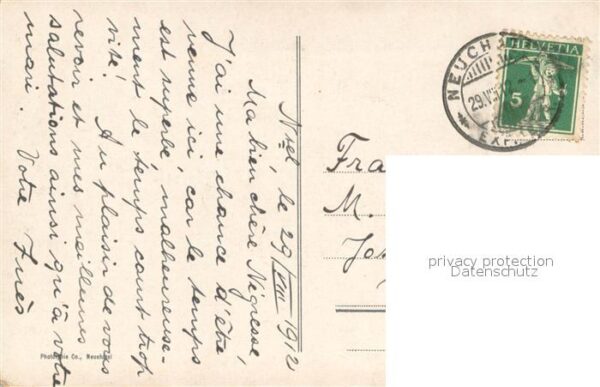 Ntel, le 29/VIII 1912
Ma bien chère Négresse,
J'ai une chance d'être
venue ici, car le temps
est superbe, malheureuse-
ment le temps court trop
vite!
Au plaisir de vous
revoir et mes meilleures
salutations ainsi qu'à votre
mari. Votre
Photographie Co., Neuchâtel
NEUCH
29.VIII
EXP
HELVETIA
5
Fra
M.
Jos
privacy protection
Datenschutz